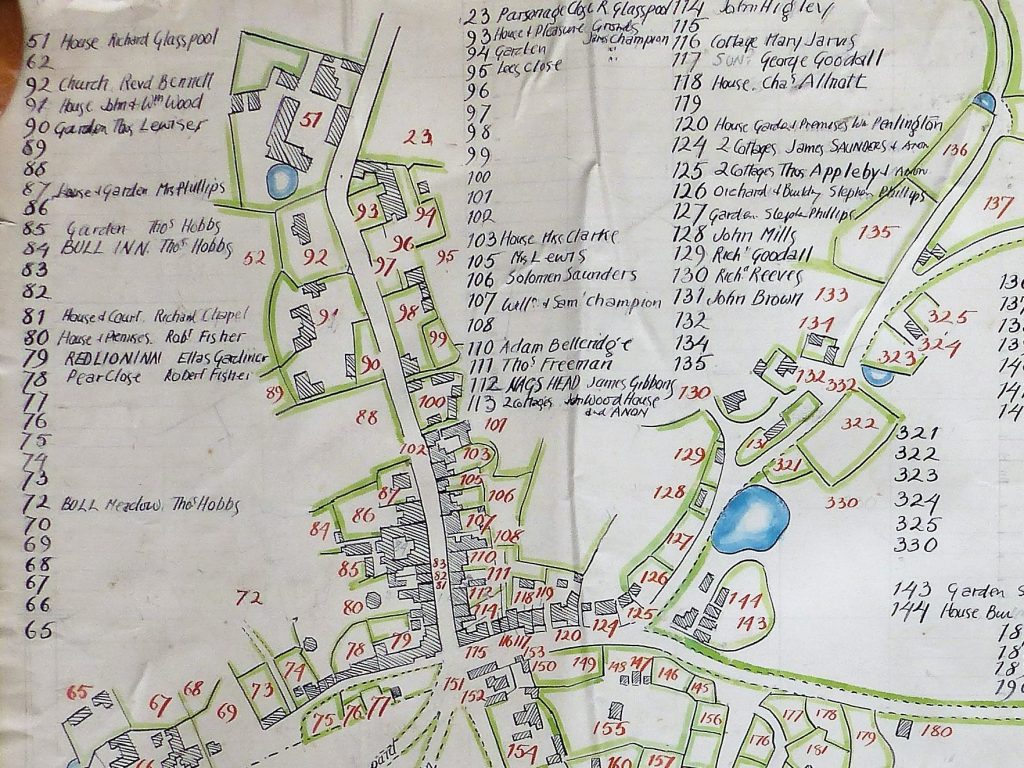 51 House Richard Glasspool
62
92 Church Revd Bennell
91 House John & Wm Wood
90 Garden Thos Lewiser
89
88
87 House & Garden Mrs Phillips
86
85 Garden Thos Hobbs
84 BULL INN. Thos Hobbs
83
82
81 House & Court. Richard Chapel
80 House & Premises Robt Fisher
79 RED LION INN Elias Gardiner
78 Pear Close Robert Fisher
77
76
75
74
73
72 BULL Meadow. Thos Hobbs
70
69
68
67
66
65
23 Parsonage Close R Glasspool
93 House & Pleasure Grounds
94 Garden James Champion
95 Lees Close "
96
97
98
99
100
101
102
103 House Mrs Clarke
105 Mrs Lewis
106 Solomen Saunders
107 Willm & Saml Champion
108
110 Adam Belleridge
111 Thos Freeman
112 NAGS HEAD James Gibbons
113 2 Cottages John Wood House
and ANON
114 John Higley
115
116 Cottage Mary Jarvis
117 SUN. George Goodall
118 House. Chas Allnatt
119
120 House Garden & Premises Wm Penlington
124 2 Cottages James SAUNDERS & Anon
125 2 Cottages Thos Appleby & Anon
126 Orchard & Buildg Stephen Phillips
127 Garden Stephn Phillips
128 John Mills
129 Richd Goodall
130 Richd Reeves
131 John Brown
132
134
135
321
322
323
324
325
330
143 Garden S
144 House Bui
51
23
93
94
52
92
96
95
97
91
98
99
90
89
88
100
101
102
103
105
106
87
86
84
107
108
85
110
111
83
82
81
112
118
119
80
114
72
79
78
116
117
120
124
125
126
127
128
129
130
131
132
332
134
133
135
136
137
325
324
323
322
321
330
144
143
115
153
150
149
148
147
146
145
151
152
154
155
156
157
160
176
177
178
179
180
181
65
67
68
69
73
74
75
76
77
66